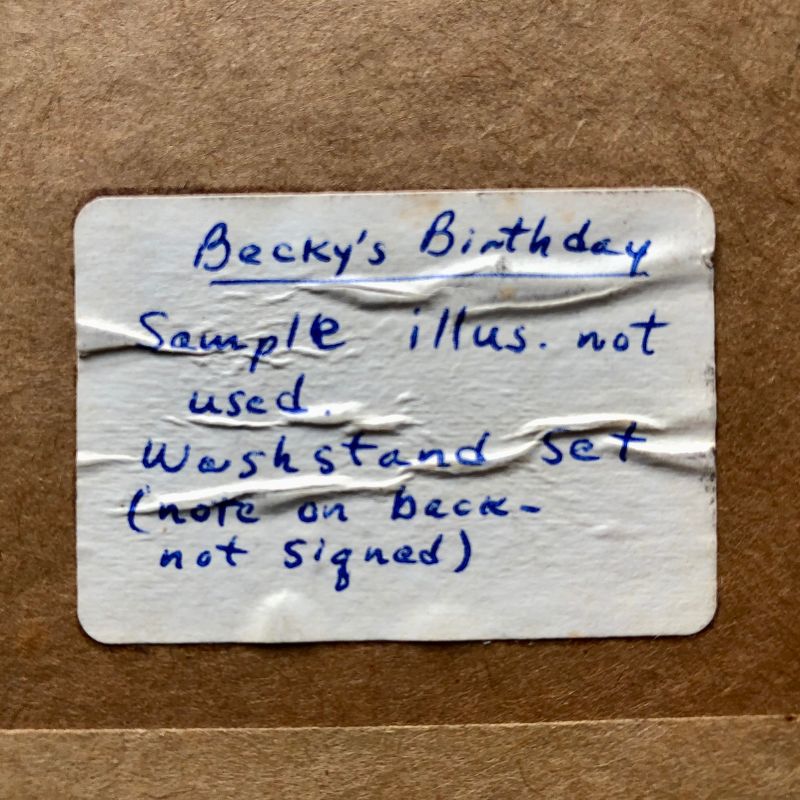 Becky's Birthday
Sample illus. not
used.
Washstand set
(note on back-
not signed)